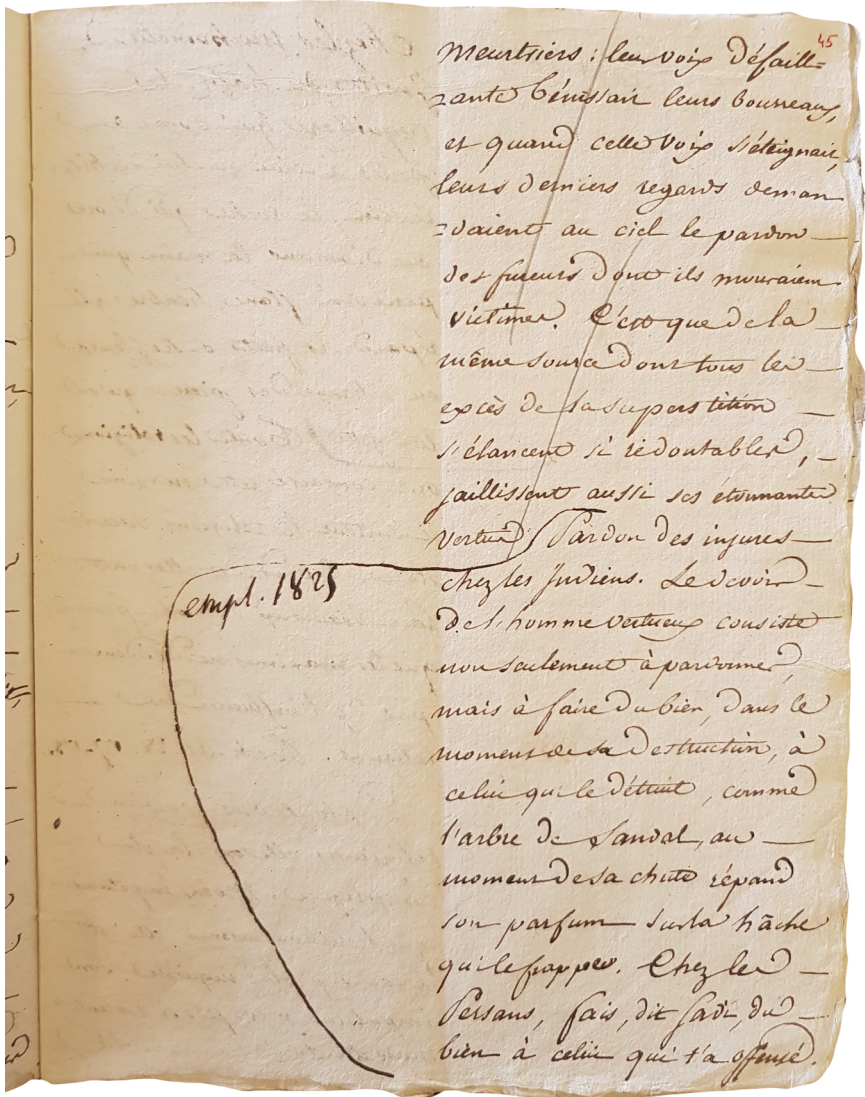 45
meurtriers : leur voix défaill=
=ante bénissait leurs bourreaux,
et quand cette voix s'éteignait,
leurs derniers regards deman
=daient au ciel le pardon
des fureurs dont ils mouraient
victimes. C'est que de la
même source dont tous les
excès de la superstition
s'élancent si redoutables,
jaillissent aussi ses étonnantes
vertus. Pardon des injures
chez les Indiens. Le devoir
de l'homme vertueux consiste
non seulement à pardonner,
mais à faire du bien, dans le
moment de sa destruction, à
celui qui le détruit, comme
l'arbre de Sandal, au
moment de sa chute répand
son parfum sur la hâche
qui le frappe. Chez les
Persans, fais, dit Sadi, du
bien à celui qui t'a offensé.
empl. 1825